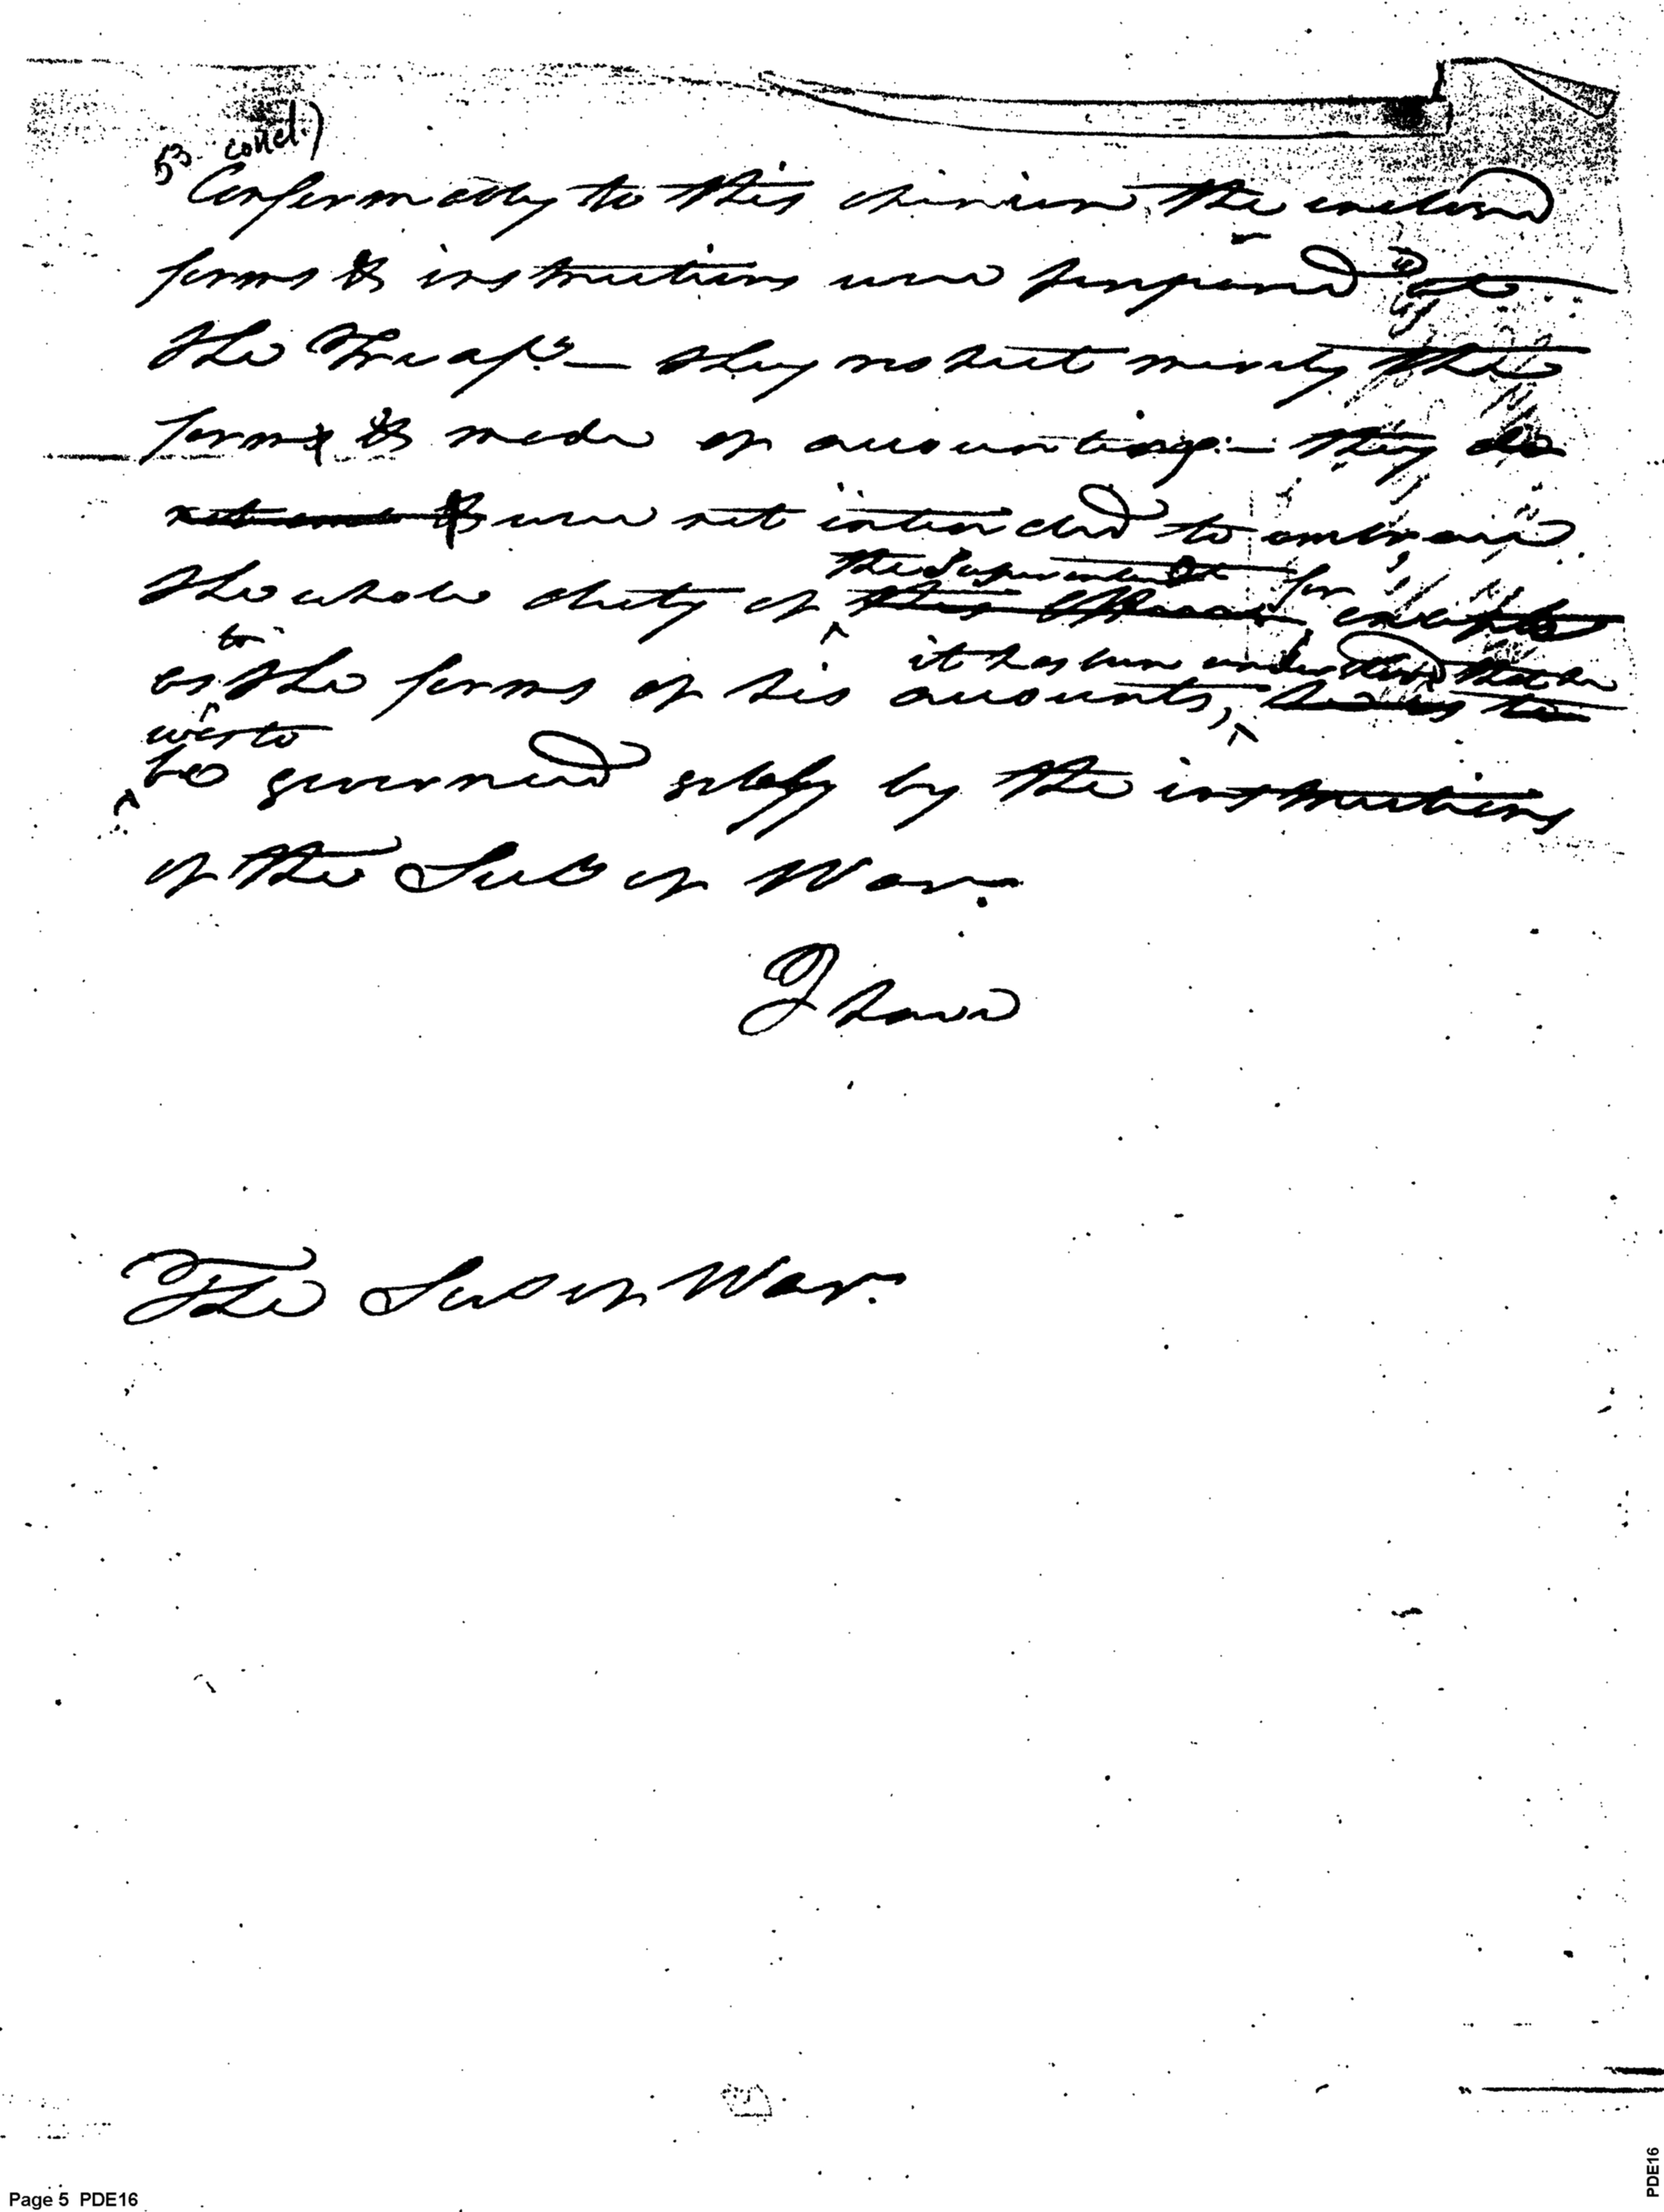 53 concl.)
Conformably to this opinion, the inclosed
forms & instructions were prepared at
the Treasy. — they respect merely the
forms & mode of accounting: — they do
not embr & were not intended to embrace
the Superintendt for
the whole duty of this Officer, except
to it has been understood that he
as the forms of his accounts, he was to
was to
be governed solely by the instructions
of the Secy of War.
I have
The Secy of War.
Page 5 PDE16
PDE16